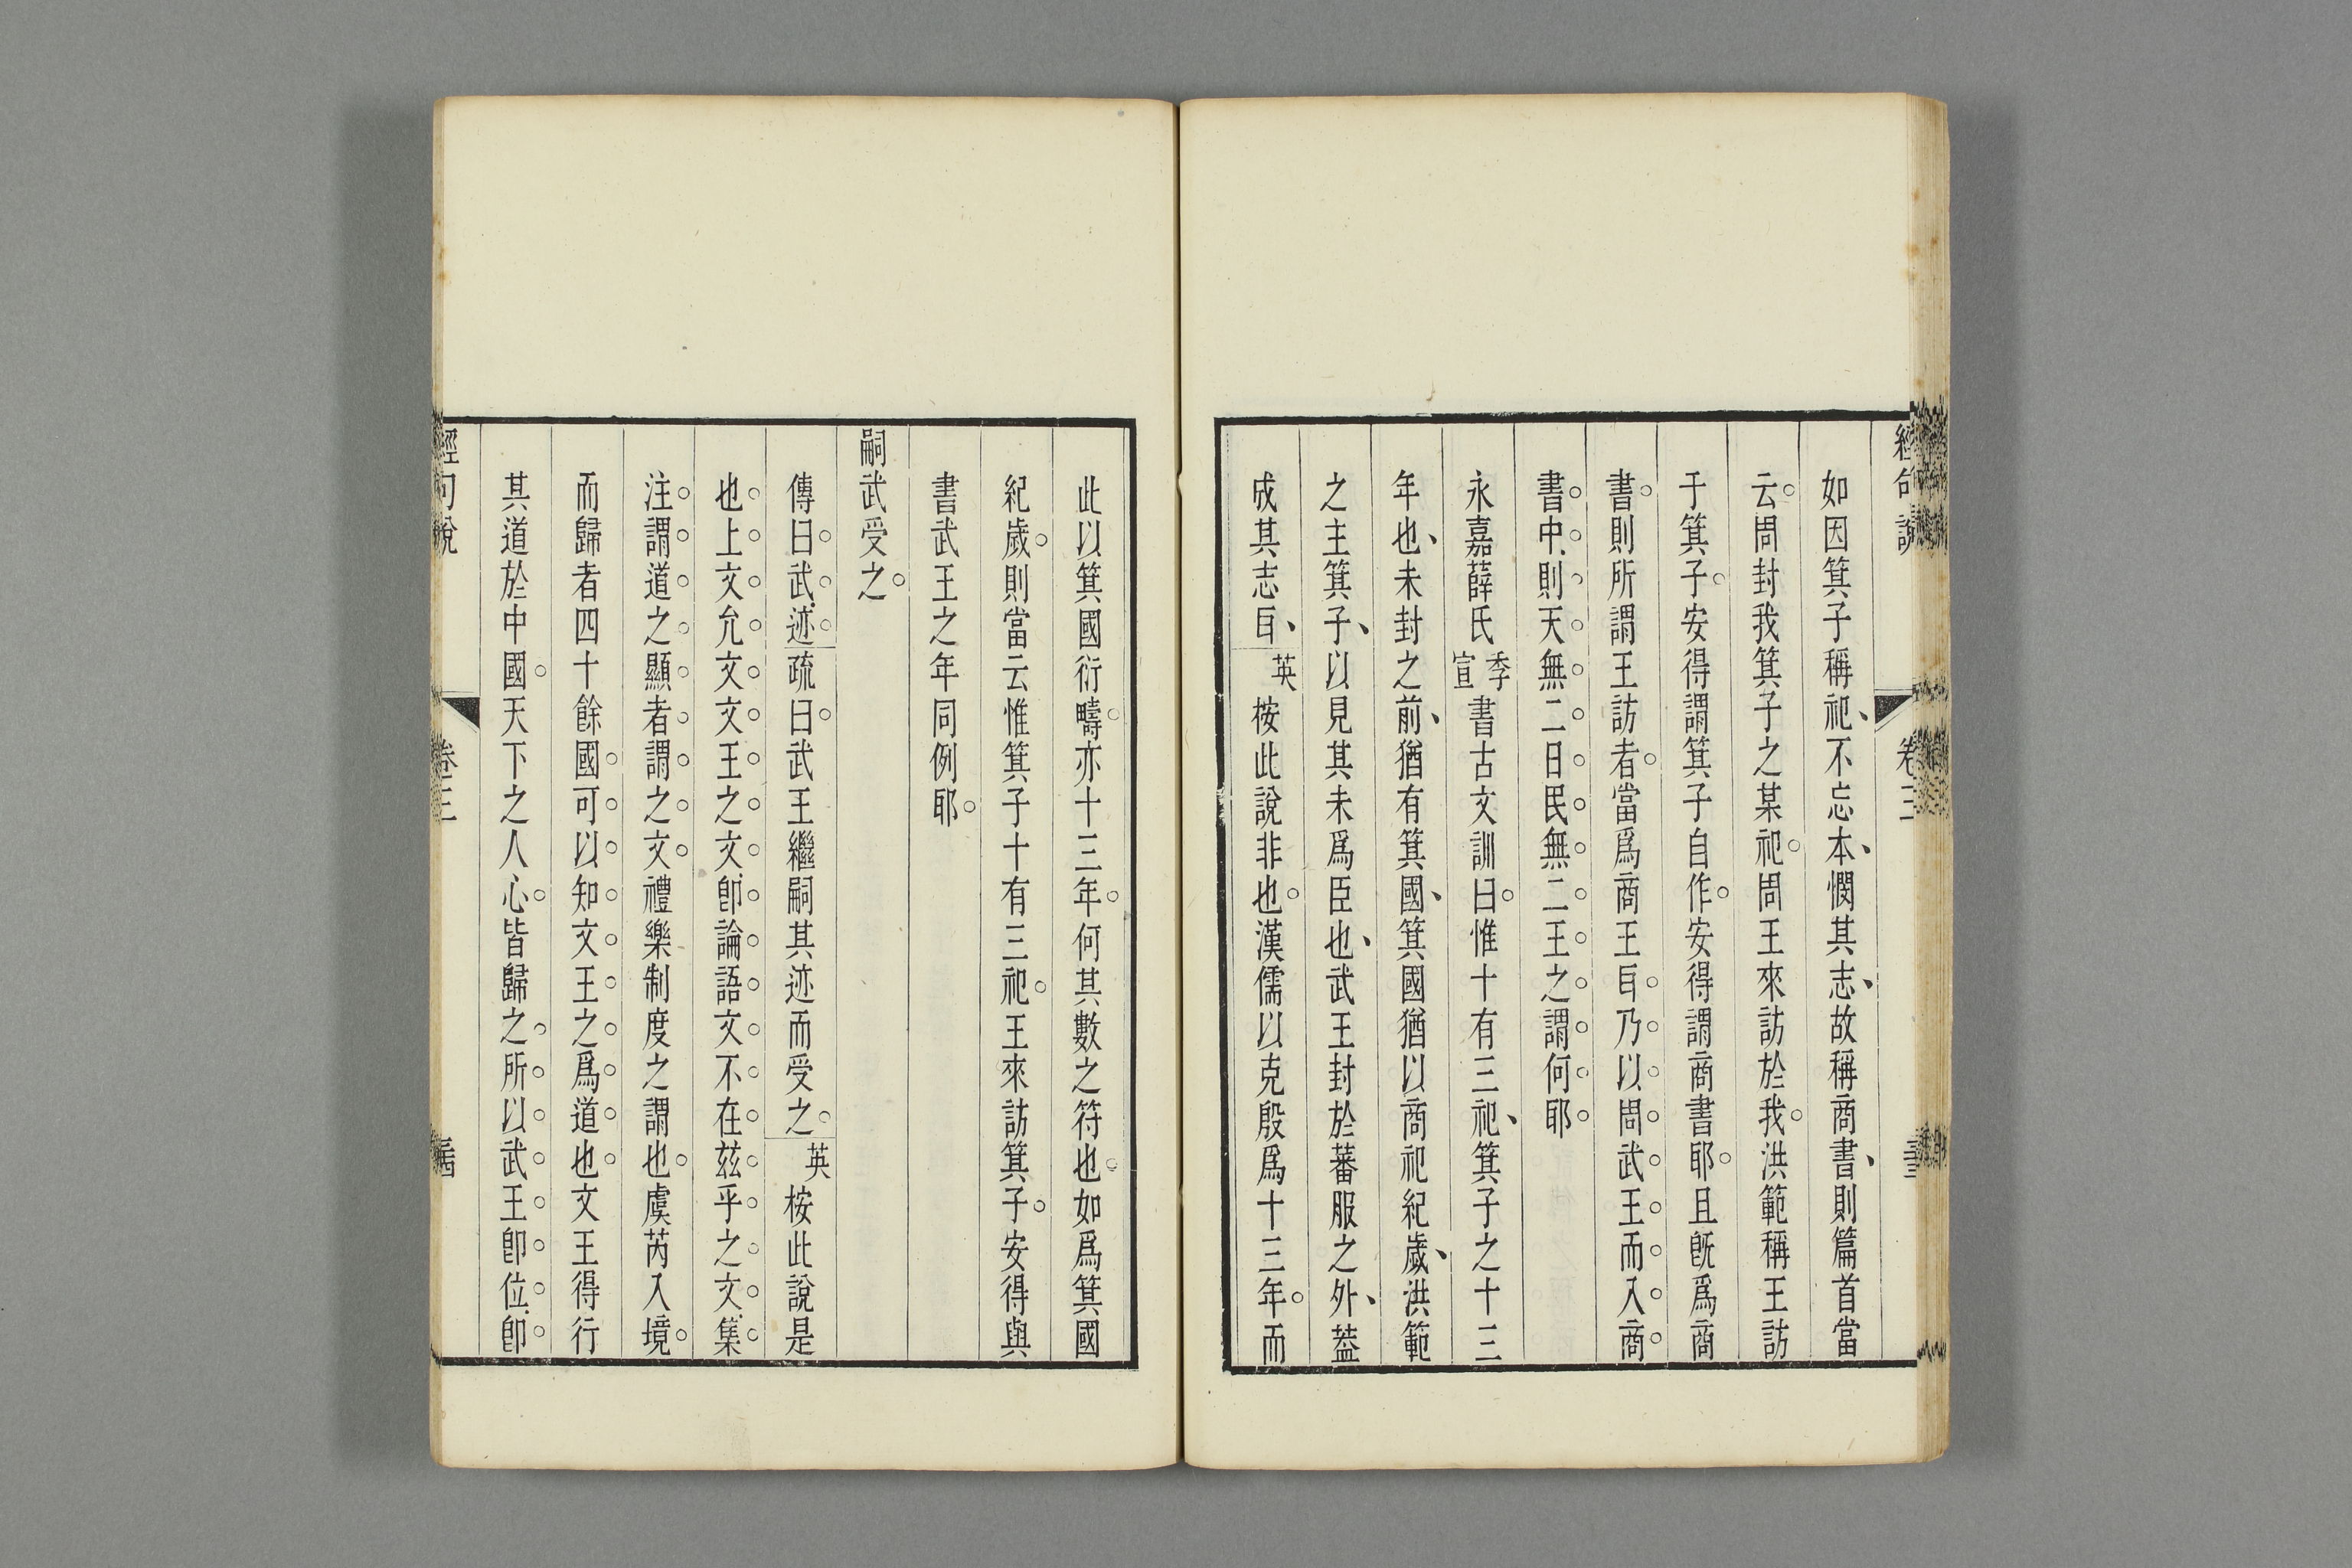 經句說
卷三
如因箕子稱祀、不忘本、憫其志、故稱商書、則篇首當
云。周封我箕子之某祀。周王來訪於我。洪範稱王訪
于箕子。安得謂箕子自作。安得謂商書耶。且旣爲商
書。則所謂王訪者。當爲商王㠯乃以周武王而入商
書中、則天無二日民無二王之謂何耶
永嘉薛氏季宣書古文訓曰。惟十有三祀、箕子之十三
年也、未封之前、猶有箕國、箕國猶以商祀紀歲、洪範
之主箕子、以見其未爲臣也、武王封於蕃服之外、葢
成其志㠯、英按此說非也。漢儒以克殷爲十三年。而
此以箕國衍疇。亦十三年。何其數之符也。如爲箕國
紀歲。則當云惟箕子十有三祀。王來訪箕子。安得與
書武王之年同例耶。
嗣武受之。
傳曰。武迹。疏曰。武王繼嗣其迹而受之。英按此說是
也上文允文文王之文、卽論語文不在茲乎之文、集
注謂道之顯者謂之文。禮樂制度之謂也。虞芮入境。
而歸者四十餘國。可以知文王之爲道也。文王得行
其道於中國。天下之人心。皆歸之。所以武王卽位、卽
經句說
卷三